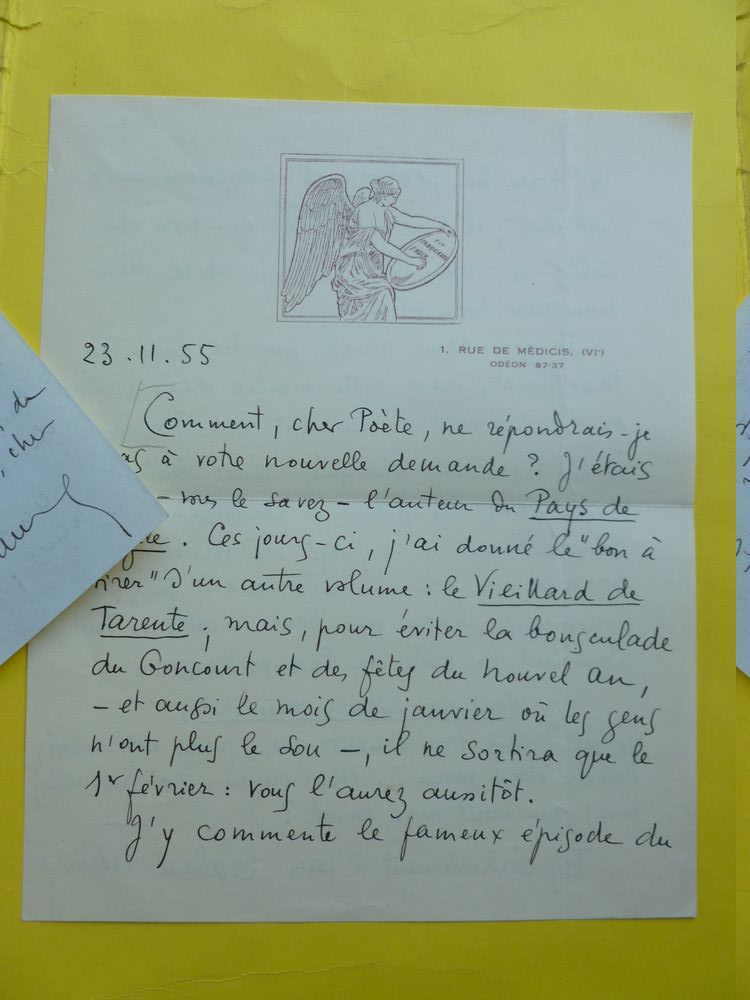 FIT
FABRICANDO
FABER
23.11.55
1. RUE DE MÉDICIS. (VIᵉ)
ODÉON 87-37
Comment, cher Poète, ne répondrais-je
as à votre nouvelle demande ? J'étais
– vous le savez – l'auteur du Pays de
gne. Ces jours-ci, j'ai donné le "bon à
tirer" d'un autre volume : le Vieillard de
Tarente ; mais, pour éviter la bousculade
du Goncourt et des fêtes du nouvel an,
– et aussi le mois de janvier où les gens
n'ont plus le sou –, il ne sortira que le
1er février : vous l'aurez aussitôt.
J'y commente le fameux épisode du
de
, cher